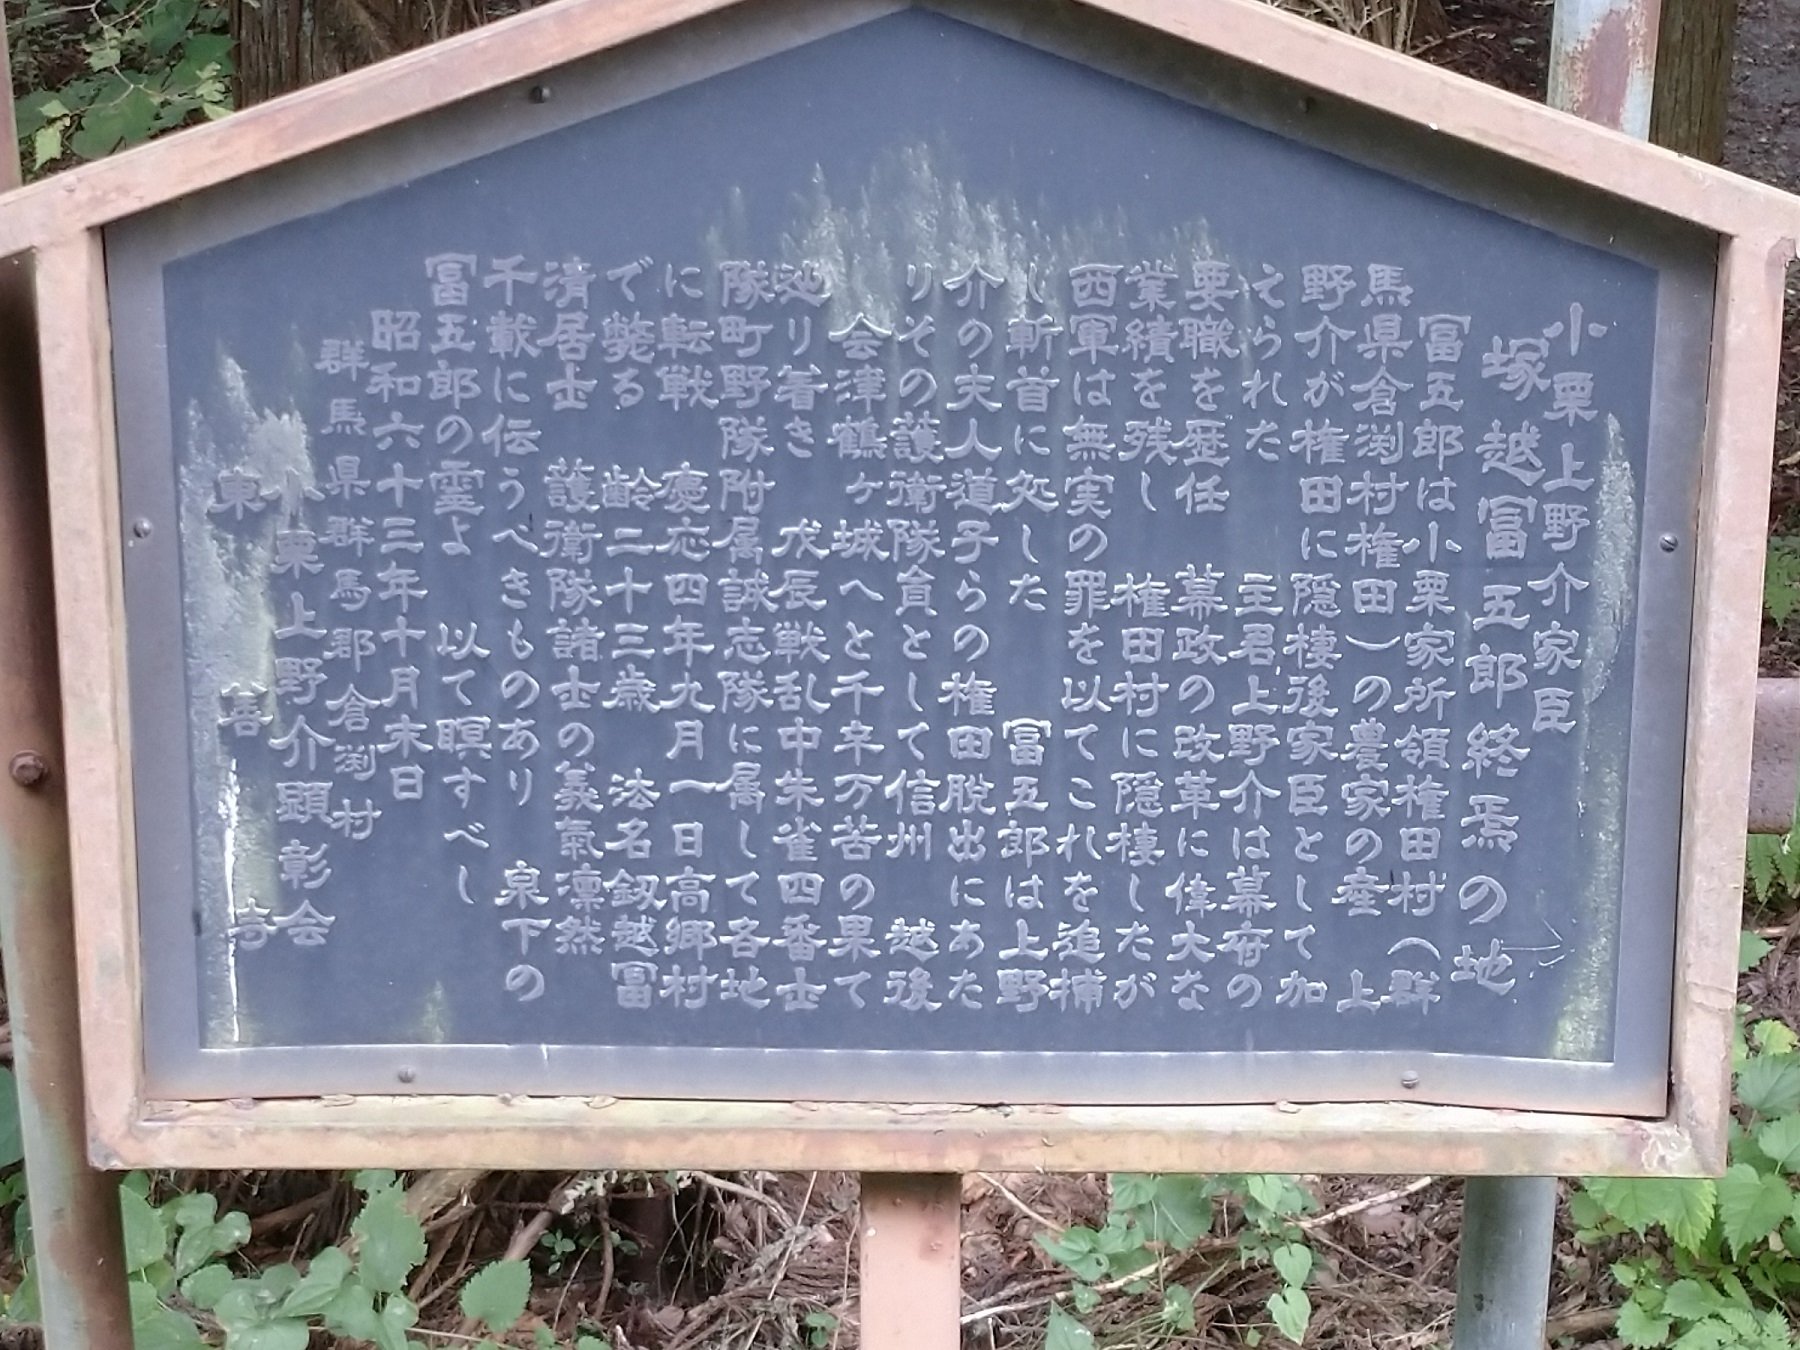 小栗上野介家臣
塚越冨五郎終焉の地
冨五郎は小栗家所領権田村（群
馬県倉渕村権田）の農家の産　上
野介が権田に隠棲後家臣として加
えられた　主君上野介は幕府の
要職を歴任　幕政の改革に偉大な
業績を残し　権田村に隠棲したが
西軍は無実の罪を以てこれを追捕
し斬首に処した　冨五郎は上野
介の夫人道子らの権田脱出にあた
りその護衛隊員として信州　越後
会津鶴ヶ城へと千辛万苦の果て
辿り着き　戊辰戦乱中朱雀四番士
隊町野隊附属誠志隊に属して各地
に転戦　慶応四年九月一日高郷村
で斃る　齢二十三歳　法名釼越冨
清居士　護衛隊諸士の義氣凛然
千載に伝うべきものあり　泉下の
冨五郎の霊よ　以て瞑すべし
昭和六十三年十月末日
群馬県群馬郡倉渕村
小栗上野介顕彰会
東善寺